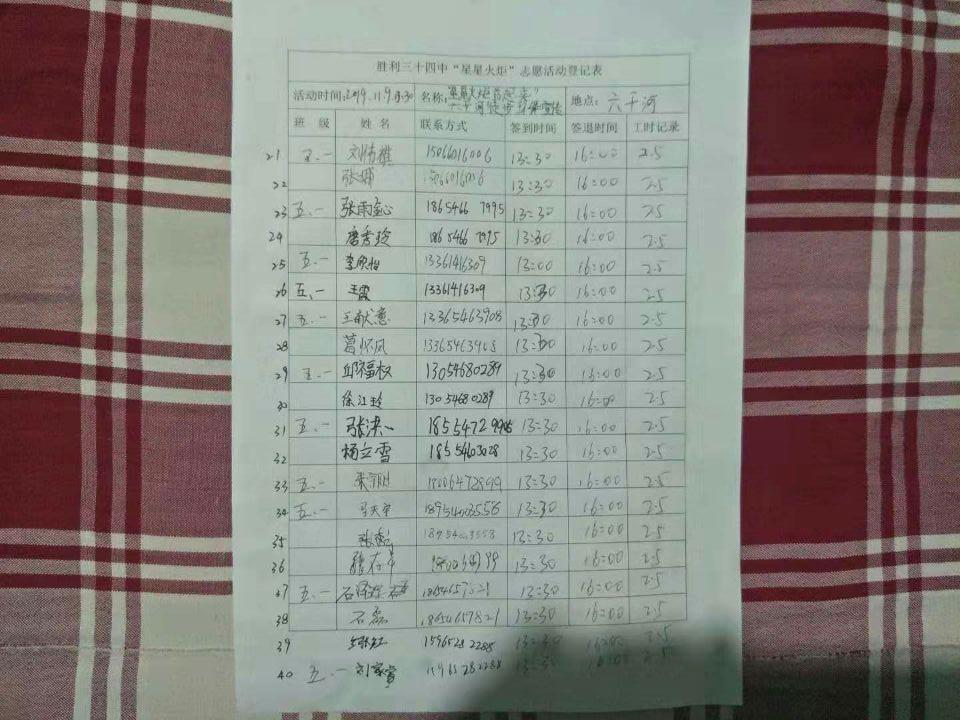 胜利三十四中“星星火炬”志愿活动登记表
活动时间:2019.11.9 13:30 名称: 地点: 六干河
班 级 姓 名 联系方式 签到时间 签退时间 工时记录
21 五.一 刘伟雄 15066016006 13:30 16:00 2.5
22 张娜 13:30 16:00 2.5
23 五.一 张雨 1865466 7995 13:30 16:00 2.5
24 唐秀玲 1865466 7995 13:30 16:00 2.5
25 五.一 李欣怡 13361416309 13:00 16:00 2.5
26 五.一 王霞 13361416309 13:30 16:00 2.5
27 五.一 王献 13365463908 13:30 16:00 2.5
28 葛怀凤 13365463908 13:30 16:00 2.5
29 五.一 邱福权 13054680289 13:30 16:00 2.5
30 徐江玲 13054680289 13:30 16:00 2.5
31 五.一 13:30 16:00 2.5
32 杨立雪 18554603028 13:30 16:00 2.5
33 五.一 13:30 16:00 2.5
34 五.一 18954003558 13:30 16:00 2.5
35 13:30 16:00 2.5
36 13:30 16:00 2.5
37 五.一 18654657821 13:30 16:00 2.5
38 石磊 18654657821 13:30 16:00 2.5
39 1596528 2288 13:30 16:00 2.5
40 五.一 13:30 16:00 2.5